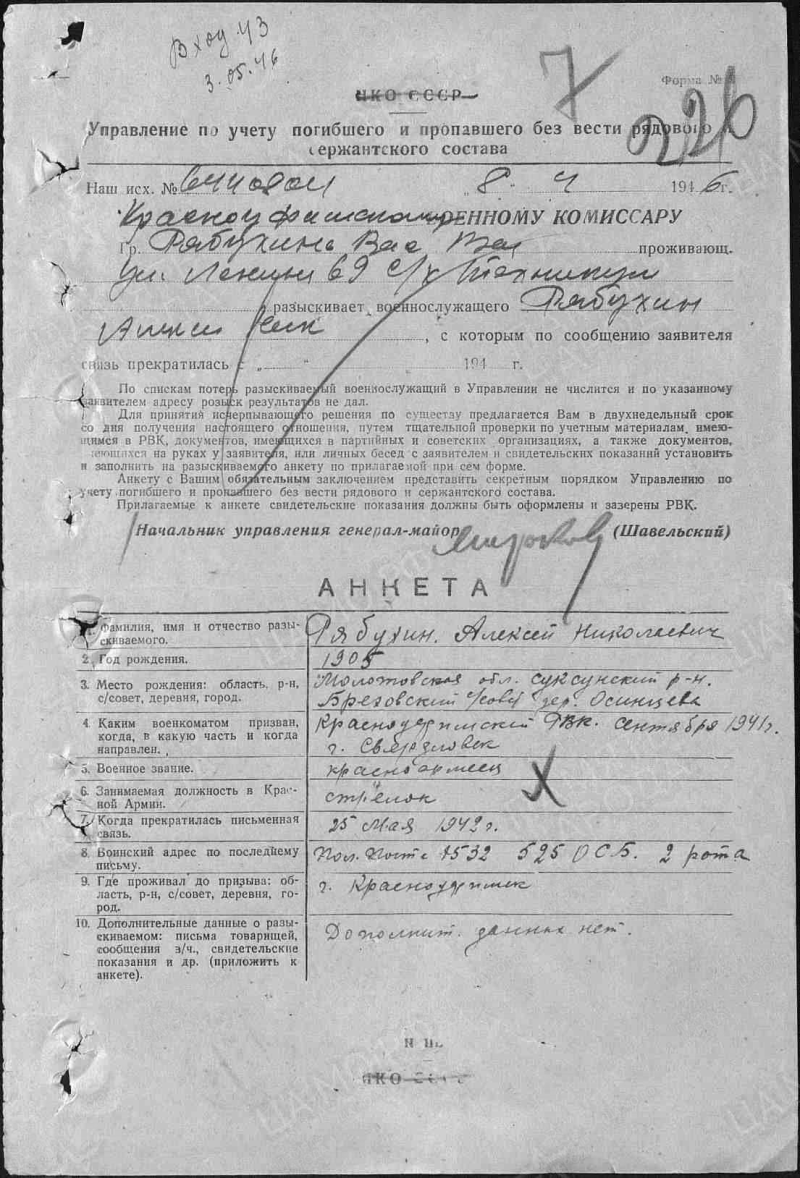 Вход 43
3.05.46
7
226
Форма №
НКО СССР
Управление по учету погибшего и пропавшего без вести рядового и
сержантского состава
Наш исх. № 8. 4 1946 г.
Красноуфимскому ВОЕННОМУ КОМИССАРУ
Гр. Рябухина Вас проживающ.
ул. Ленина 69 с/х Техникум
разыскивает военнослужащего Рябухин
Алексей Ник , с которым по сообщению заявителя
связь прекратилась с „ “ 194 г.
По спискам потерь разыскиваемый военнослужащий в Управлении не числится и по указанному
заявителем адресу розыск результатов не дал.
Для принятия исчерпывающего решения по существу предлагается Вам в двухнедельный срок
со дня получения настоящего отношения, путем тщательной проверки по учетным материалам, имею-
щимся в РВК, документов, имеющихся в партийных и советских организациях, а также документов,
имеющихся на руках у заявителя, или личных бесед с заявителем и свидетельских показаний установить
и заполнить на разыскиваемого анкету по прилагаемой при сем форме.
Анкету с Вашим обязательным заключением представить секретным порядком Управлению по
учету погибшего и пропавшего без вести рядового и сержантского состава.
Прилагаемые к анкете свидетельские показания должны быть оформлены и зазерены РВК.
Начальник управления генерал-майор (Шавельский)
АНКЕТА
1. Фамилия, имя и отчество разы-
скиваемого.
Рябухин. Алексей Николаевич
2. Год рождения.
1905
3. Место рождения: область, р-н,
с/совет, деревня, город.
Молотовская обл. Суксунский р-н.
Бреховский с/совет дер. Осинцева
4. Каким военкоматом призван,
когда, в какую часть и когда
направлен.
Красноуфимский РВК. сентября 1941г.
г. Свердловск
5. Военное звание.
красноармеец
6. Занимаемая должность в Крас-
ной Армии.
стрелок
7. Когда прекратилась письменная
связь.
25 мая 1942 г.
8. Воинский адрес по последнему
письму.
Пол. Почта 1532 525 ОСБ. 2 рота
9. Где проживал до призыва: об-
ласть, р-н, с/совет, деревня, го-
род.
г. Красноуфимск
10. Дополнительные данные о разы-
скиваемом: письма товарищей,
сообщения в/ч., свидетельские
показания и др. (приложить к
анкете).
Дополнит. данных нет.
НКО СССР